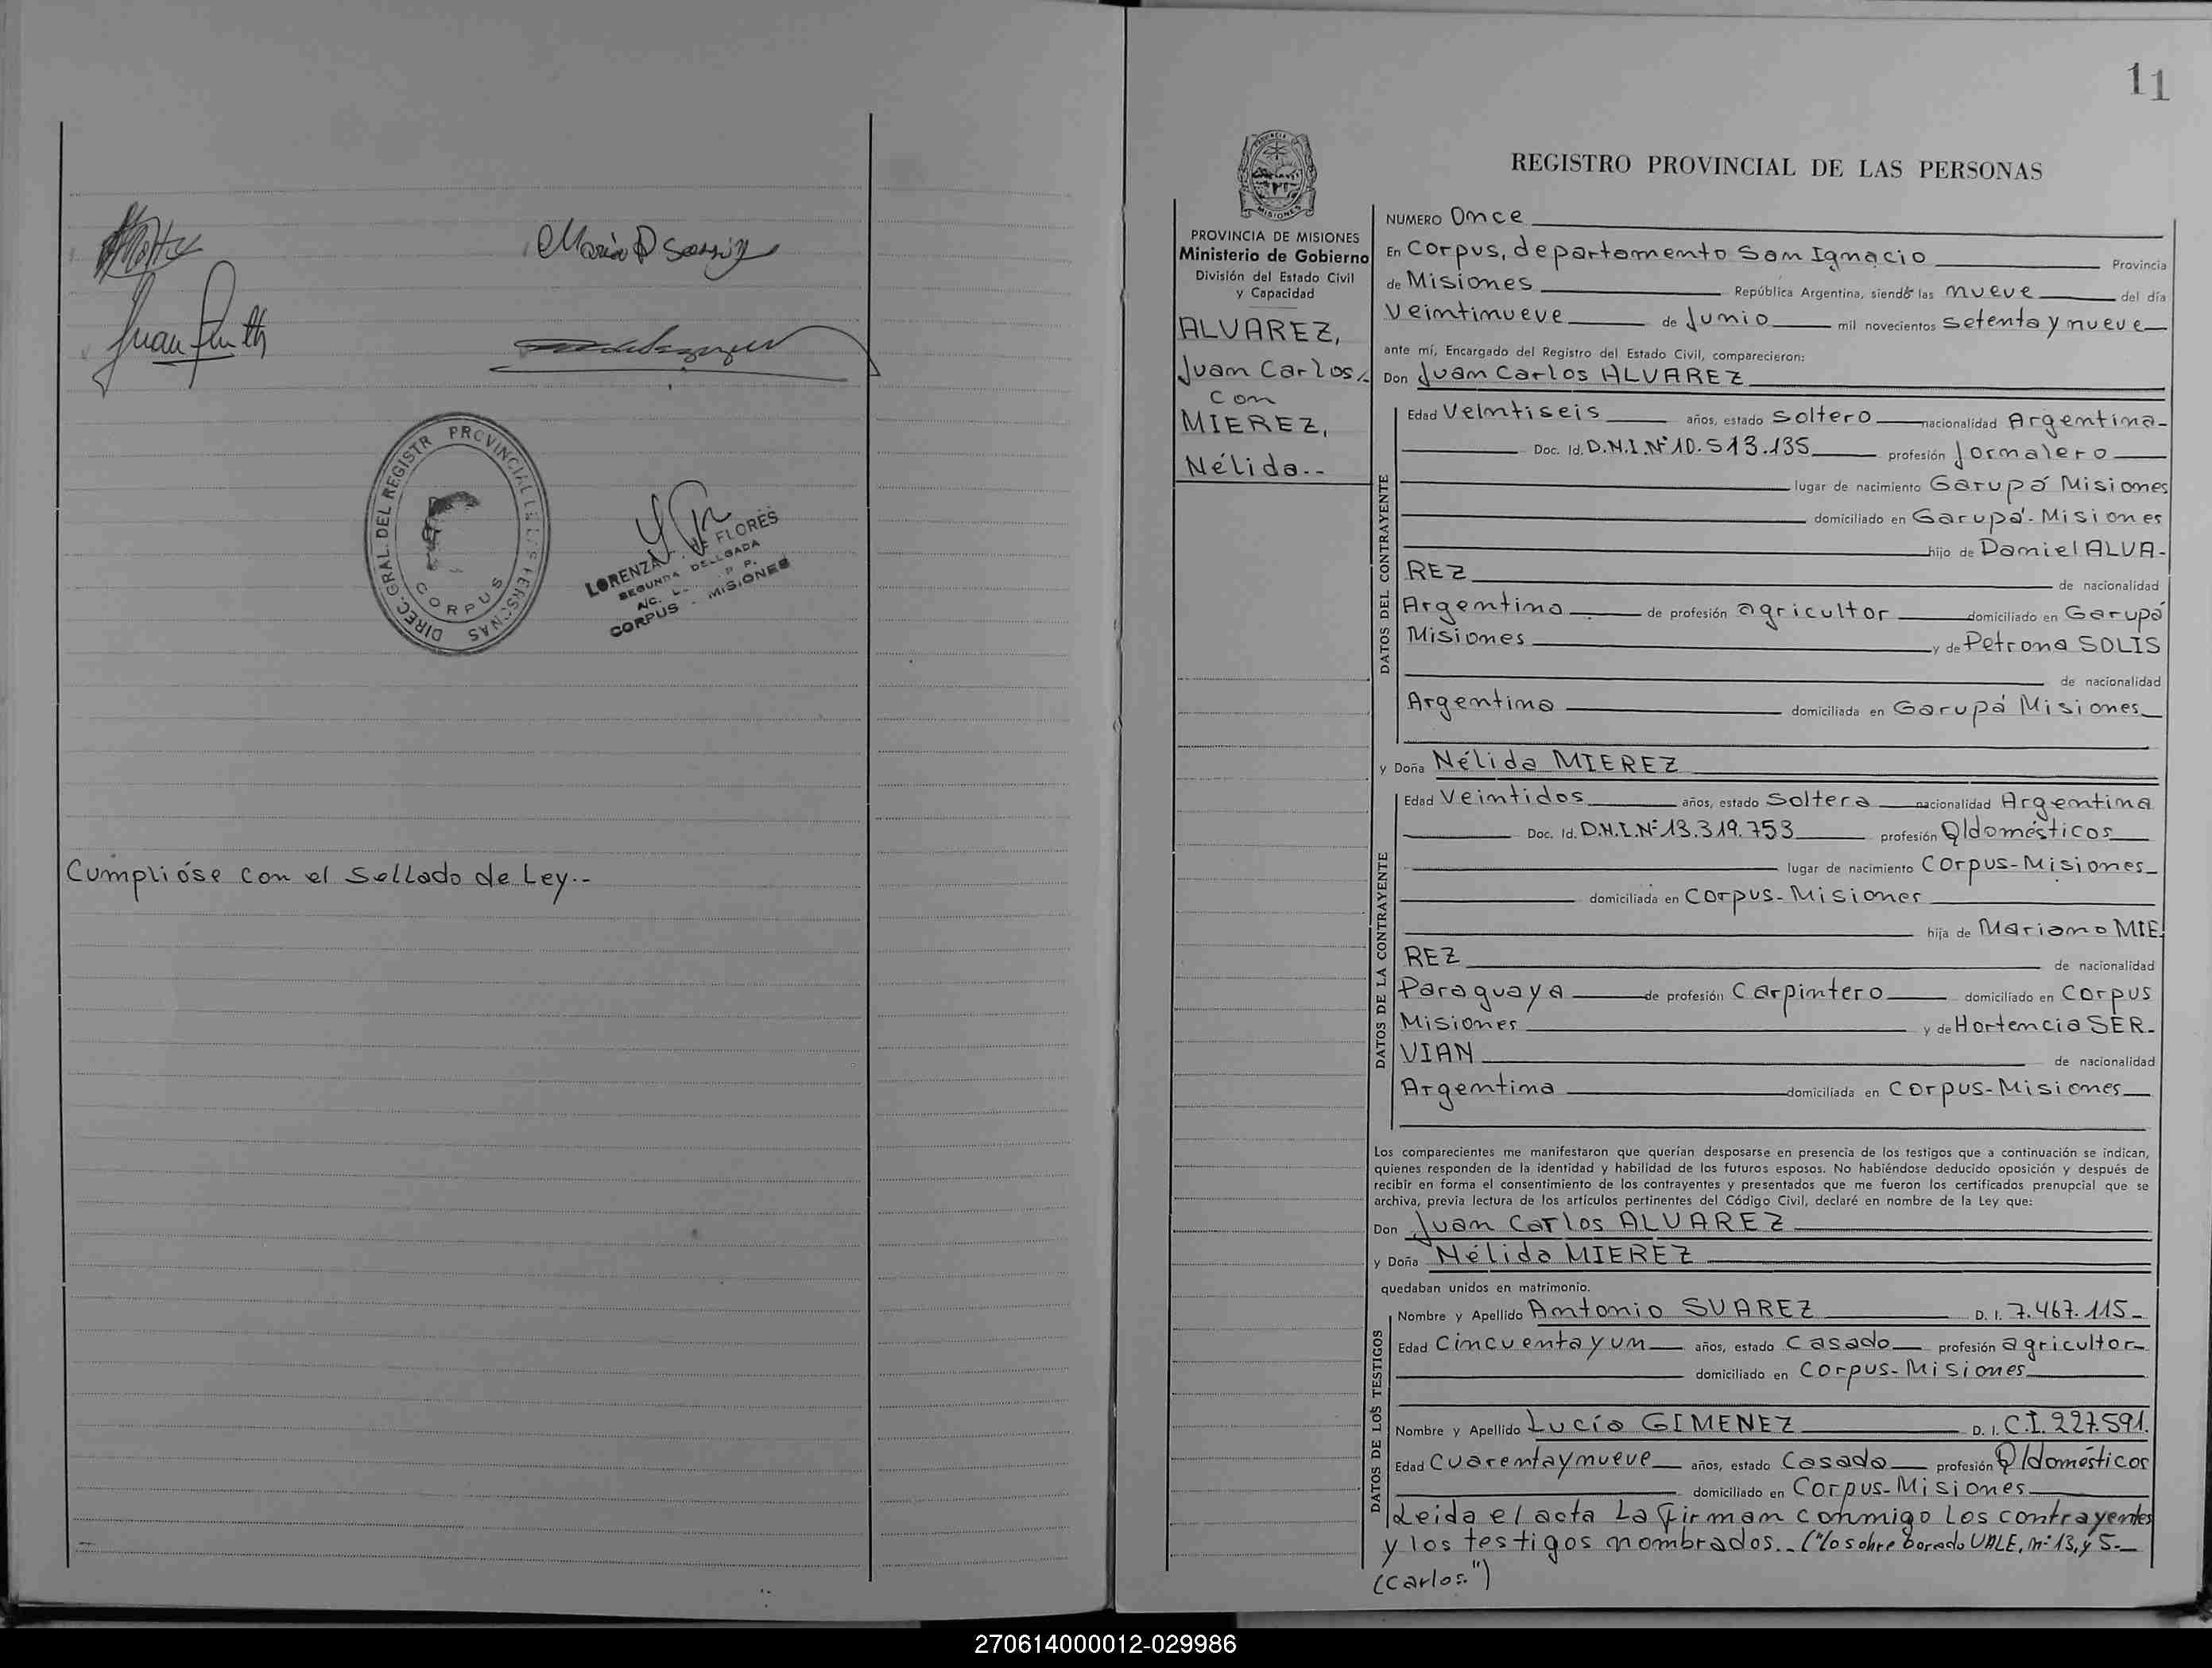 María D
Juan
DIREC. GRAL. DEL REGISTR PROVINCIAL
CORPUS
LORENZA DE FLORES
SEGUNDA DELEGADA
A/C.
CORPUS - MISIONES
Cumplióse con el Sellado de Ley.-
11
MISIONES
PROVINCIA DE MISIONES
Ministerio de Gobierno
División del Estado Civil
y Capacidad
ALVAREZ,
Juan Carlos,
con
MIEREZ,
Nélida.--
REGISTRO PROVINCIAL DE LAS PERSONAS
NUMERO Once
En Corpus, departamento San Ignacio Provincia
de Misiones República Argentina, siendo las nueve del día
Veintinueve de Junio mil novecientos setenta y nueve
ante mí, Encargado del Registro del Estado Civil, comparecieron:
Don Juan Carlos ALVAREZ
DATOS DEL CONTRAYENTE
Edad Veintiseis años, estado soltero nacionalidad Argentina-
Doc. Id. D.N.I.Nº10.513.135 profesión Jornalero
lugar de nacimiento Garupá Misiones
domiciliado en Garupá-Misiones
hijo de Daniel ALVA-
REZ de nacionalidad
Argentina de profesión agricultor domiciliado en Garupá
Misiones y de Petrona SOLIS
de nacionalidad
Argentina domiciliada en Garupá Misiones
y Doña Nélida MIEREZ
DATOS DE LA CONTRAYENTE
Edad Veintidos años, estado Soltera nacionalidad Argentina
Doc. Id. D.N.I.Nº13.319.753 profesión Q/domésticos
lugar de nacimiento Corpus-Misiones
domiciliada en Corpus-Misiones
hija de Mariano MIE
REZ de nacionalidad
Paraguaya de profesión Carpintero domiciliado en Corpus
Misiones y de Hortencia SER-
VIAN de nacionalidad
Argentina domiciliada en Corpus-Misiones
Los comparecientes me manifestaron que querían desposarse en presencia de los testigos que a continuación se indican,
quienes responden de la identidad y habilidad de los futuros esposos. No habiéndose deducido oposición y después de
recibir en forma el consentimiento de los contrayentes y presentados que me fueron los certificados prenupcial que se
archiva, previa lectura de los artículos pertinentes del Código Civil, declaré en nombre de la Ley que:
Don Juan Carlos ALVAREZ
y Doña Nélida MIEREZ
quedaban unidos en matrimonio.
DATOS DE LOS TESTIGOS
Nombre y Apellido Antonio SUAREZ D. I. 7.467.115-
Edad Cincuenta y un años, estado Casado profesión agricultor-
domiciliado en Corpus-Misiones
Nombre y Apellido Lucía GIMENEZ D. I. C.I. 227.591.
Edad Cuarenta y nueve años, estado Casada profesión Q/domésticos
domiciliado en Corpus-Misiones
Leida el acta La firman conmigo Los contrayentes
y los testigos nombrados.-("lo sobre borrado VALE, nº 13, y 5.-
(Carlos.")
270614000012-029986